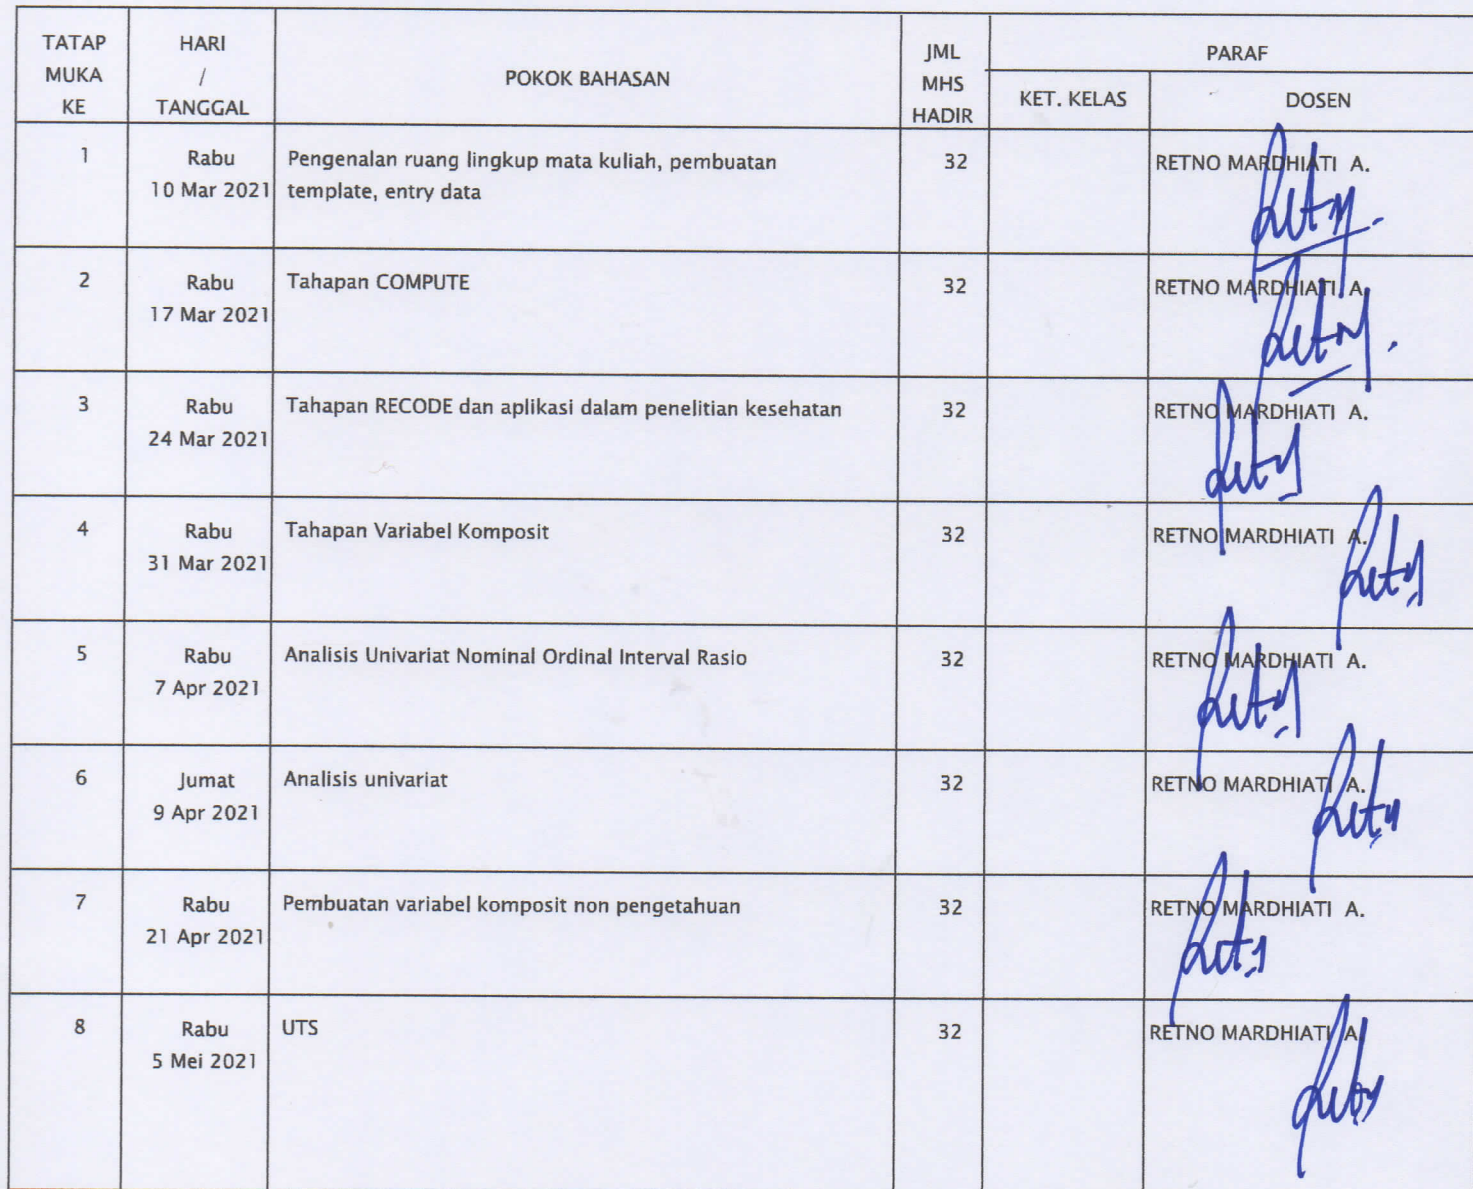 TATAP MUKA KE
HARI / TANGGAL
POKOK BAHASAN
JML MHS HADIR
PARAF
KET. KELAS
DOSEN
1
Rabu
10 Mar 2021
Pengenalan ruang lingkup mata kuliah, pembuatan
template, entry data
32
RETNO MARDHIATI A.
2
Rabu
17 Mar 2021
Tahapan COMPUTE
32
RETNO MARDHIATI A.
3
Rabu
24 Mar 2021
Tahapan RECODE dan aplikasi dalam penelitian kesehatan
32
RETNO MARDHIATI A.
4
Rabu
31 Mar 2021
Tahapan Variabel Komposit
32
RETNO MARDHIATI A.
5
Rabu
7 Apr 2021
Analisis Univariat Nominal Ordinal Interval Rasio
32
RETNO MARDHIATI A.
6
Jumat
9 Apr 2021
Analisis univariat
32
RETNO MARDHIATI A.
7
Rabu
21 Apr 2021
Pembuatan variabel komposit non pengetahuan
32
RETNO MARDHIATI A.
8
Rabu
5 Mei 2021
UTS
32
RETNO MARDHIATI A.